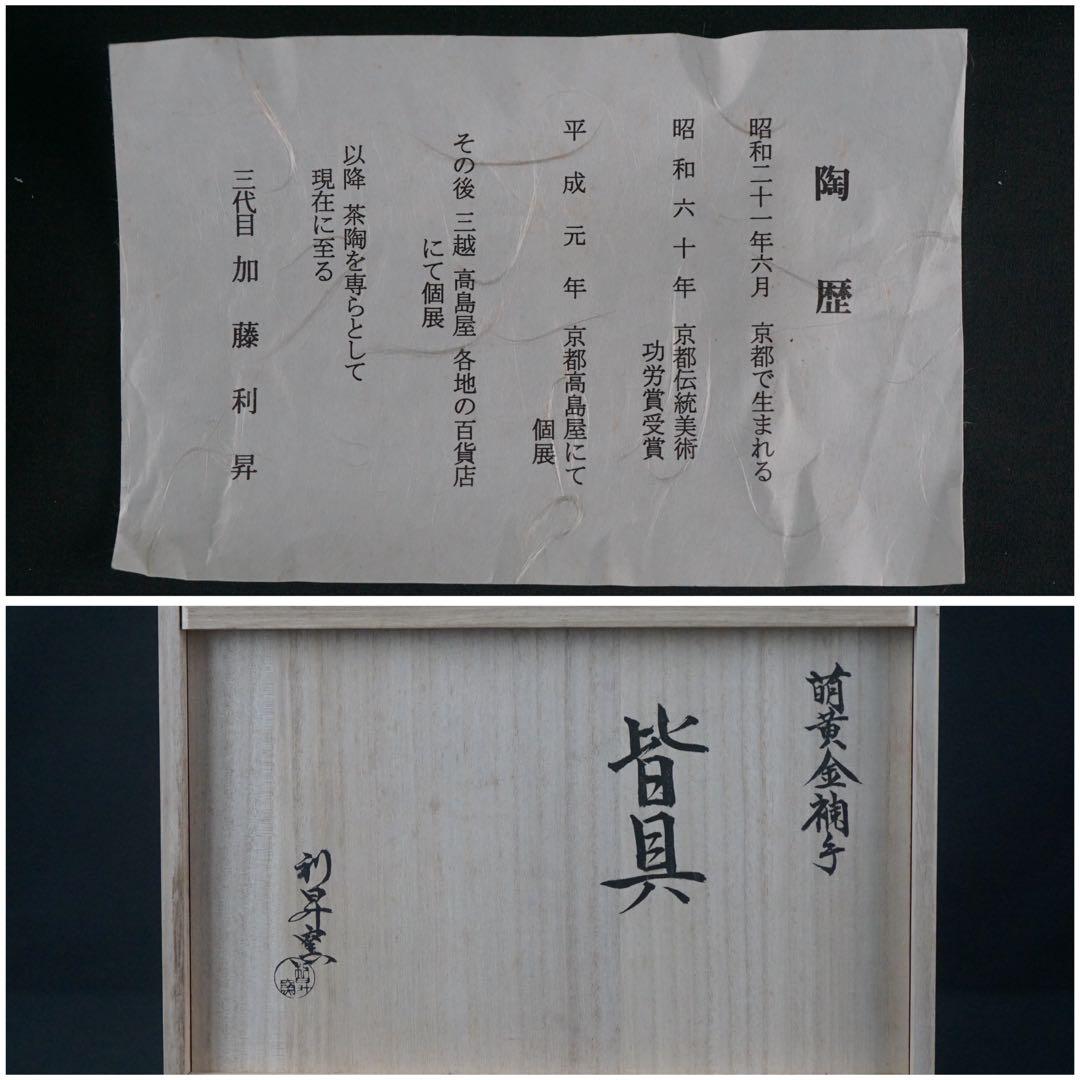 陶歴
昭和二十一年六月 京都で生まれる
昭和六十年 京都伝統美術
功労賞受賞
平成元年 京都高島屋にて
個展
その後 三越 高島屋 各地の百貨店
にて個展
以降 茶陶を専らとして
現在に至る
三代目 加藤利昇
萌黄金襴手
皆具
利昇窯